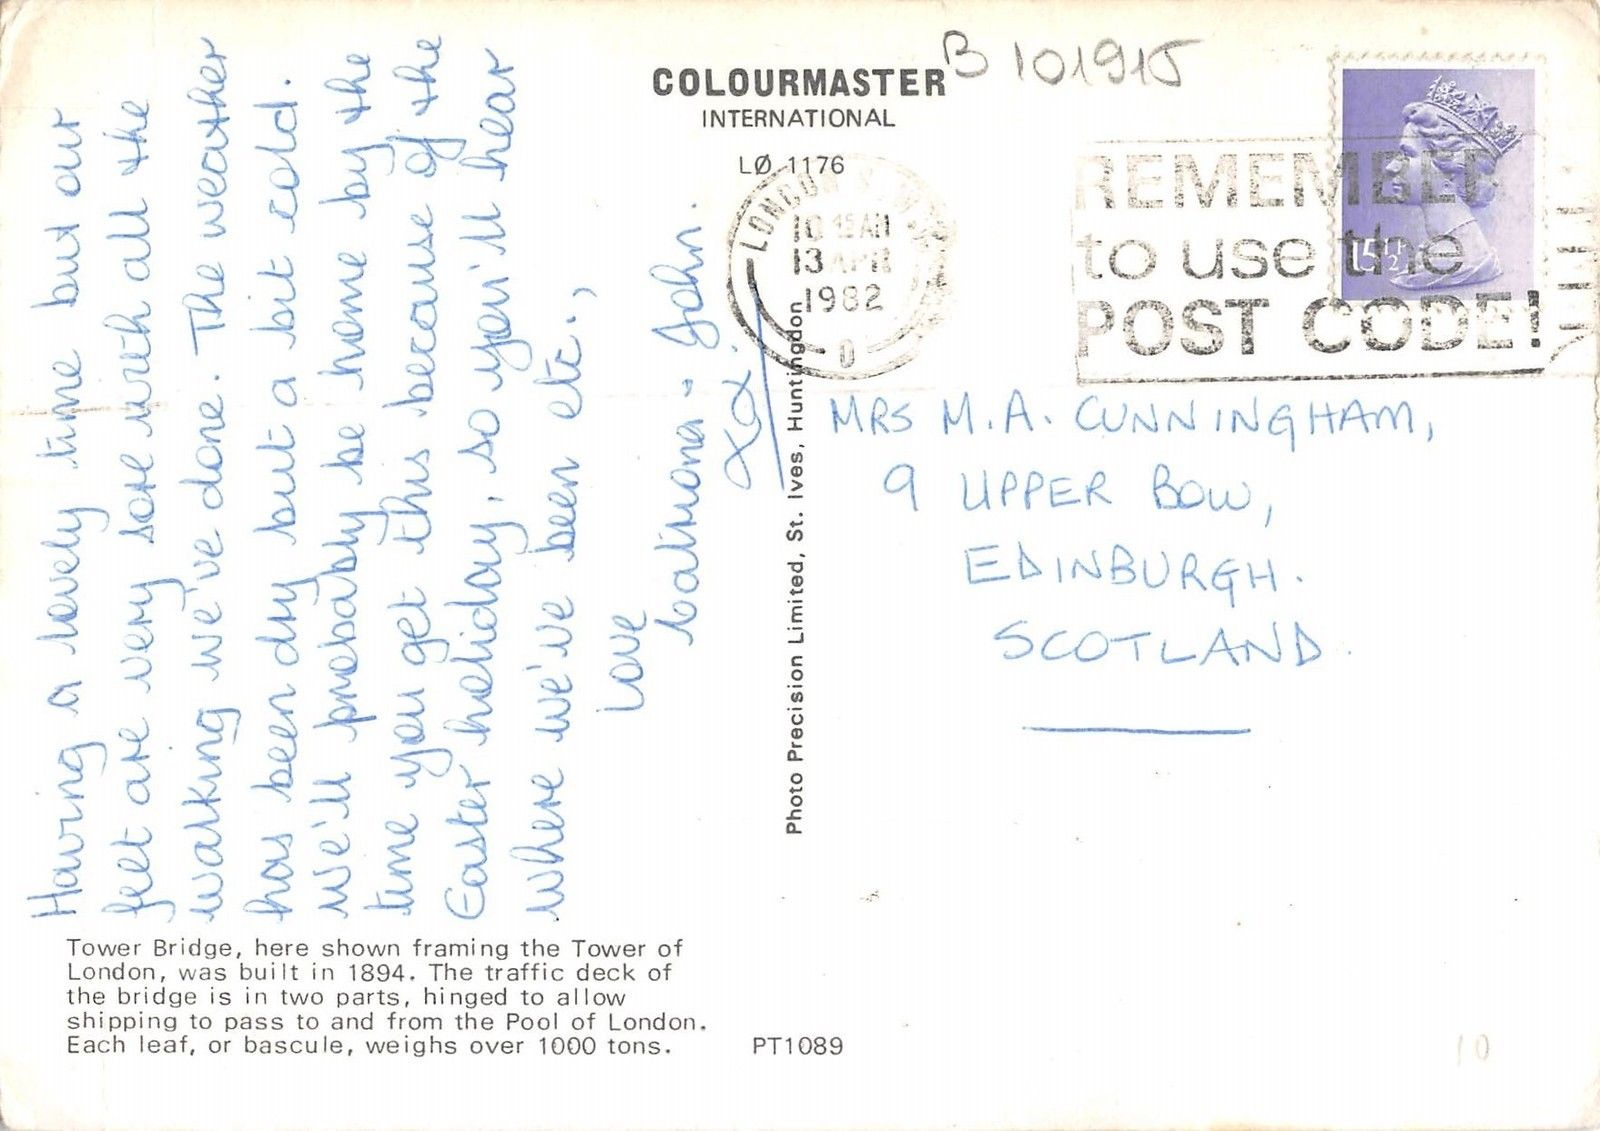 Having a lovely time but our
feet are very sore with all the
walking we've done. The weather
has been dry but a bit cold.
We'll probably be home by the
time you get this because of the
Easter holiday, so you'll hear
where we've been etc.,
Love
Catriona + John.
xox.
COLOURMASTER
INTERNATIONAL
LØ 1176
B 101915
LONDON
10 15 AM
13 APR
1982
D
REMEMBER
to use the
POST CODE!
15½P
MRS M.A. CUNNINGHAM,
9 UPPER BOW,
EDINBURGH.
SCOTLAND.
Photo Precision Limited, St. Ives, Huntingdon
Tower Bridge, here shown framing the Tower of
London, was built in 1894. The traffic deck of
the bridge is in two parts, hinged to allow
shipping to pass to and from the Pool of London.
Each leaf, or bascule, weighs over 1000 tons.
PT1089
10